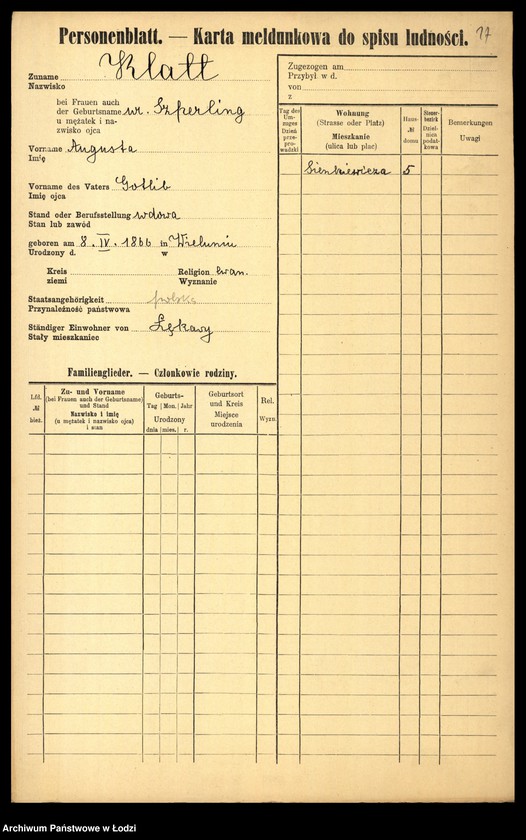 Personenblatt. — Karta meldunkowa do spisu ludności. 17
Zuname Klatt
Nazwisko
bei Frauen auch
der Geburtsname w. Szperling
u mężatek i na-
zwisko ojca
Vorname Augusta
Imię
Vorname des Vaters Gotlib
Imię ojca
Stand oder Berufsstellung wdowa
Stan lub zawód
geboren am 8. IV. 1866 in Wieluniu
Urodzony d. w
Kreis Religion Ewan.
ziemi Wyznanie
Staatsangehörigkeit polska
Przynależność państwowa
Ständiger Einwohner von Łękawy
Stały mieszkaniec
Familienglieder. — Członkowie rodziny.
Lfd.
№
bież.
Zu- und Vorname
(bei Frauen auch der Geburtsname)
und Stand
Nazwisko i imię
(u mężatek i nazwisko ojca)
i stan
Geburts-
Tag Mon. Jahr
Urodzony
dnia mies. r.
Geburtsort
und Kreis
Miejsce
urodzenia
Rel.
Wyzn.
Zugezogen am
Przybył w d.
von
z
Tag des
Um-
zuges
Dzień
prze-
pro-
wadzki
Wohnung
(Strasse oder Platz)
Mieszkanie
(ulica lub plac)
Haus-
№
domu
Steuer-
bezirk
Dziel-
nica
podat-
kowa
Bemerkungen
Uwagi
Sienkiewicza 5
Archiwum Państwowe w Łodzi